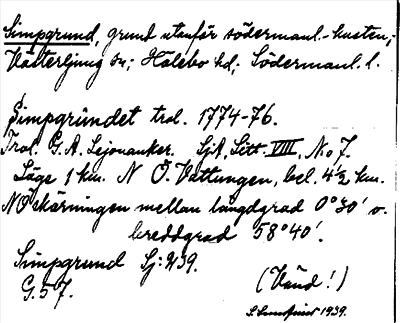 Simpgrund, grund utanför södermanl.-kusten,
Västerljung sn; Hölebo hd; Södermanl. l.
Simpgrundet trol. 1774-76.
Trol. G. A. Lejonanker. SjA, Litt. VIII, No 7.
Läge 1 km. N Ö. Vattungen, bel. 4½ km.
NO skärningen mellan längdgrad 0°30' o.
breddgrad 58°40'.
Simpgrund Sj: 239.
G. 57.
(Vänd!)
1939.